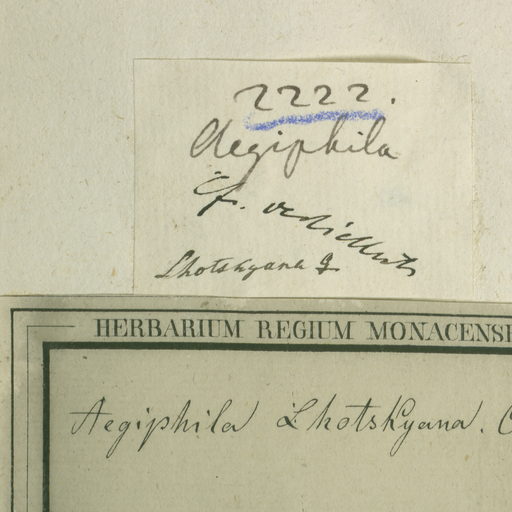 2222.
Aegiphila
cf.
Lhotskyana
HERBARIUM REGIUM MONACENSE
Aegiphila Lhotskyana. C